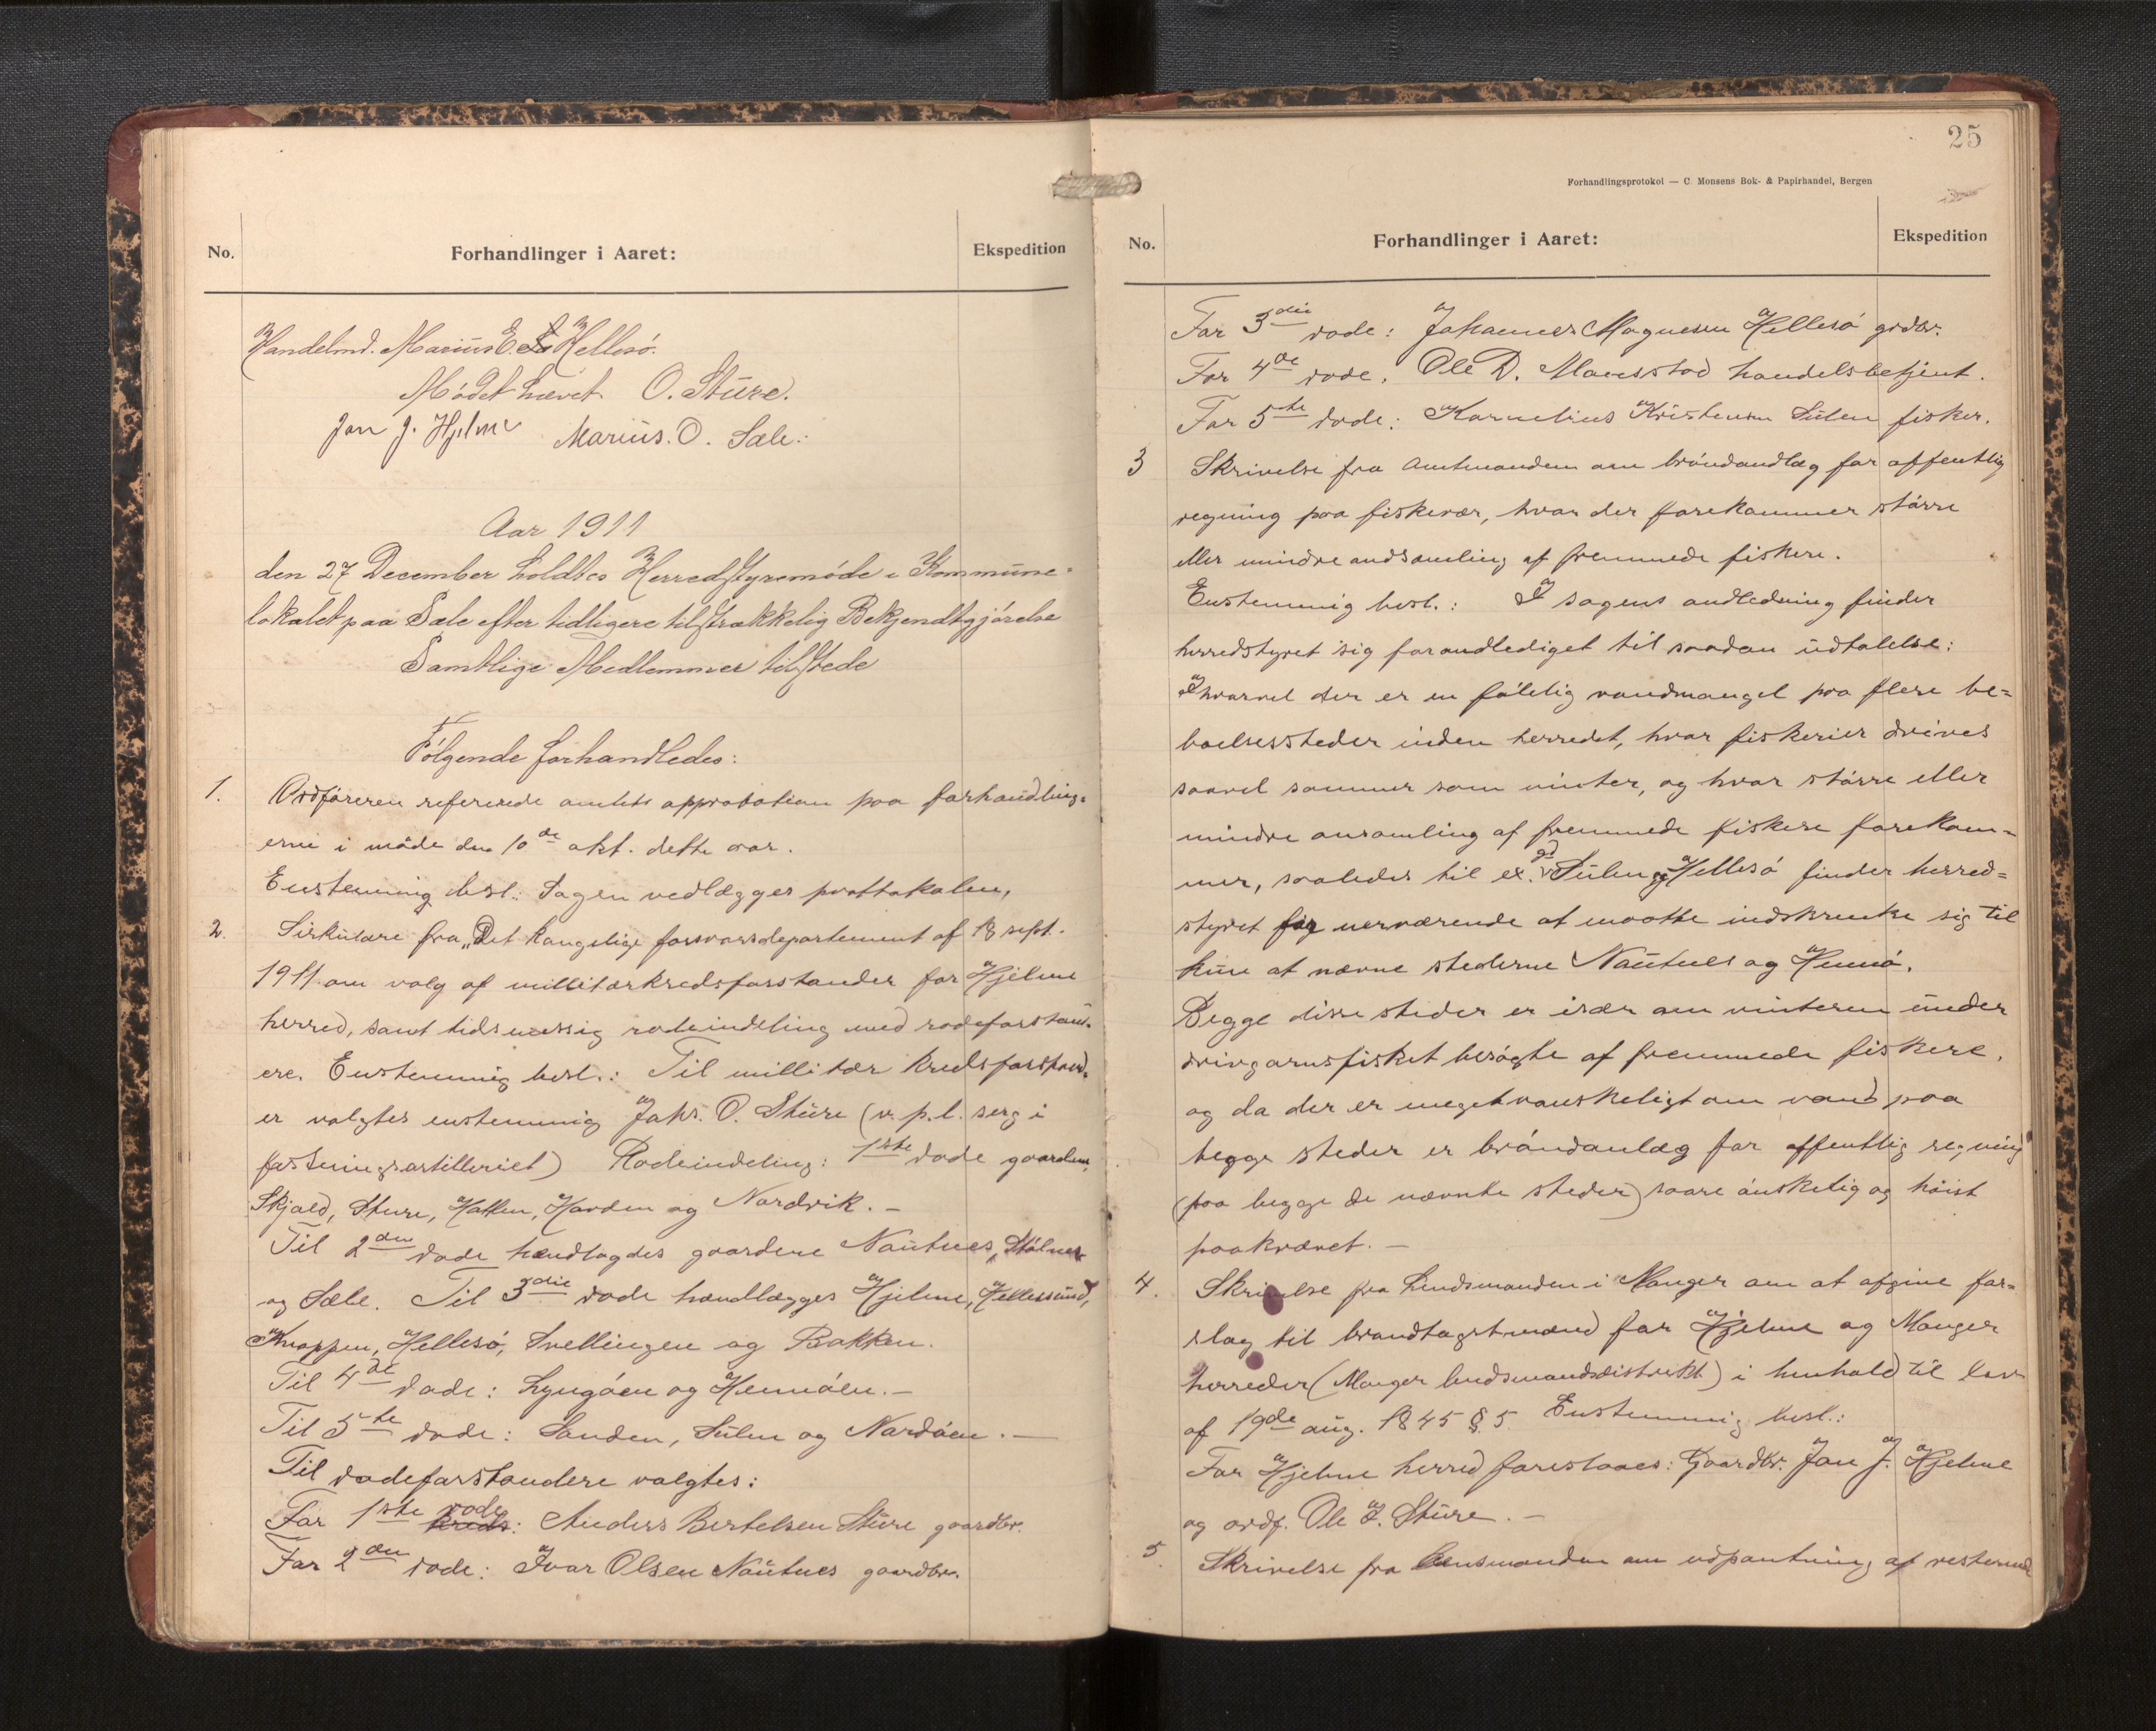 No.
Forhandlinger i Aaret:
Ekspedition
Handelmd. Marius E. Hellesö.
Mödet hævet O. Sture.
Jon J. Hjelme Marius. O. Sæle.
Aar 1911
den 27 December holdtes Herredstyremöde i Kommune-
lokalet paa Sæle efter tidligere tilstrækkelig Bekjendtgjörelse
Samtlige Medlemmer tilstede
Fölgende forhandledes:
1. Ordföreren refererede amtets approbation paa forhandling-
erne i möde den 10de okt. dette aar.
Enstemmig besl.: Sagen vedlægges prottokolen,
2. Sirkulære fra „Det kongelige forsvarsdepartement af 18 sept.
1911 om valg af millitærkredsforstander for Hjelme
herred, samt tidsmessig rodeindeling med rodeforstand-
ere. Enstemmig besl.: Til millitær kredsforstand-
er valgtes enstemmig Johs. O. Sture (v. p. l. serg i
festningsartilleriet) Rodeindeling: 1ste rode gaardene
Skjold, Sture, Hatten, Harden og Nordvik. –
Til 2den rode hændlagdes gaardene Nautnes, Stölnes
og Sæle. Til 3die rode hændlægges Hjelme, Hellessund,
Knappen, Hellesö, Svellingen og Bakken.
Til 4de rode: Lyngöen og Hennöen. –
Til 5te rode: Sanden, Sulen og Nordöen. –
Til rodeforstandere valgtes:
For 1ste rode kreds: Anders Bertelsen Sture gaardbr.
For 2den rode: Ivar Olsen Nautnes gaardbr.
25
Forhandlingsprotokol — C. Monsens Bok- & Papirhandel, Bergen
No.
Forhandlinger i Aaret:
Ekspedition
For 3die rode: Johannes Magnesen Hellesö grdbr.
For 4de rode. Ole D. handelsbetjent.
For 5te rode: Kornelius Kristensen Sulen fisker.
3 Skrivelse fra Amtmanden om bröndandlæg for offentlig
regning paa fiskevær, hvor der forekommer större
eller mindre andsamling af fremmede fiskere.
Enstemmig besl.: I sagens andledning finder
herredstyret sig forandlediget til saadan udtalelse:
Ihvorvel der er en fölelig vandmangel paa flere be-
boelsessteder inden herredet, hvor fiskerier drives
saavel sommer som vinter, og hvor större eller
mindre ansamling af fremmede fiskere forekom-
mer, saaledes til ex. Sulen og Hellesö finder herred-
styret for nerværende at maatte indskrenke sig til
kun at nævne stederne Nautnes og Hennö.
Begge disse steder er især om vinteren under
drivgarnsfisket besögte af fremmede fiskere,
og da der er meget vanskeligt om vand paa
begge steder er bröndanlæg for offentlig regning
(paa begge de nævnte steder) saare önskelig og höist
paakrævet. –
4. Skrivelse fra Lendsmanden i Manger om at afgive for-
slag til brandtagstmænd for Hjelme og Manger
herreder (Manger lendsmandsdistrikt) i henhold til lov
af 19de aug. 1845 § 5 Enstemmig besl.:
For Hjelme herred foreslaaes: Gaardbr. Jon J. Hjelme
og ordf. Ole I. Sture. –
5. Skrivelse fra Lensmanden om udpantning af resterende